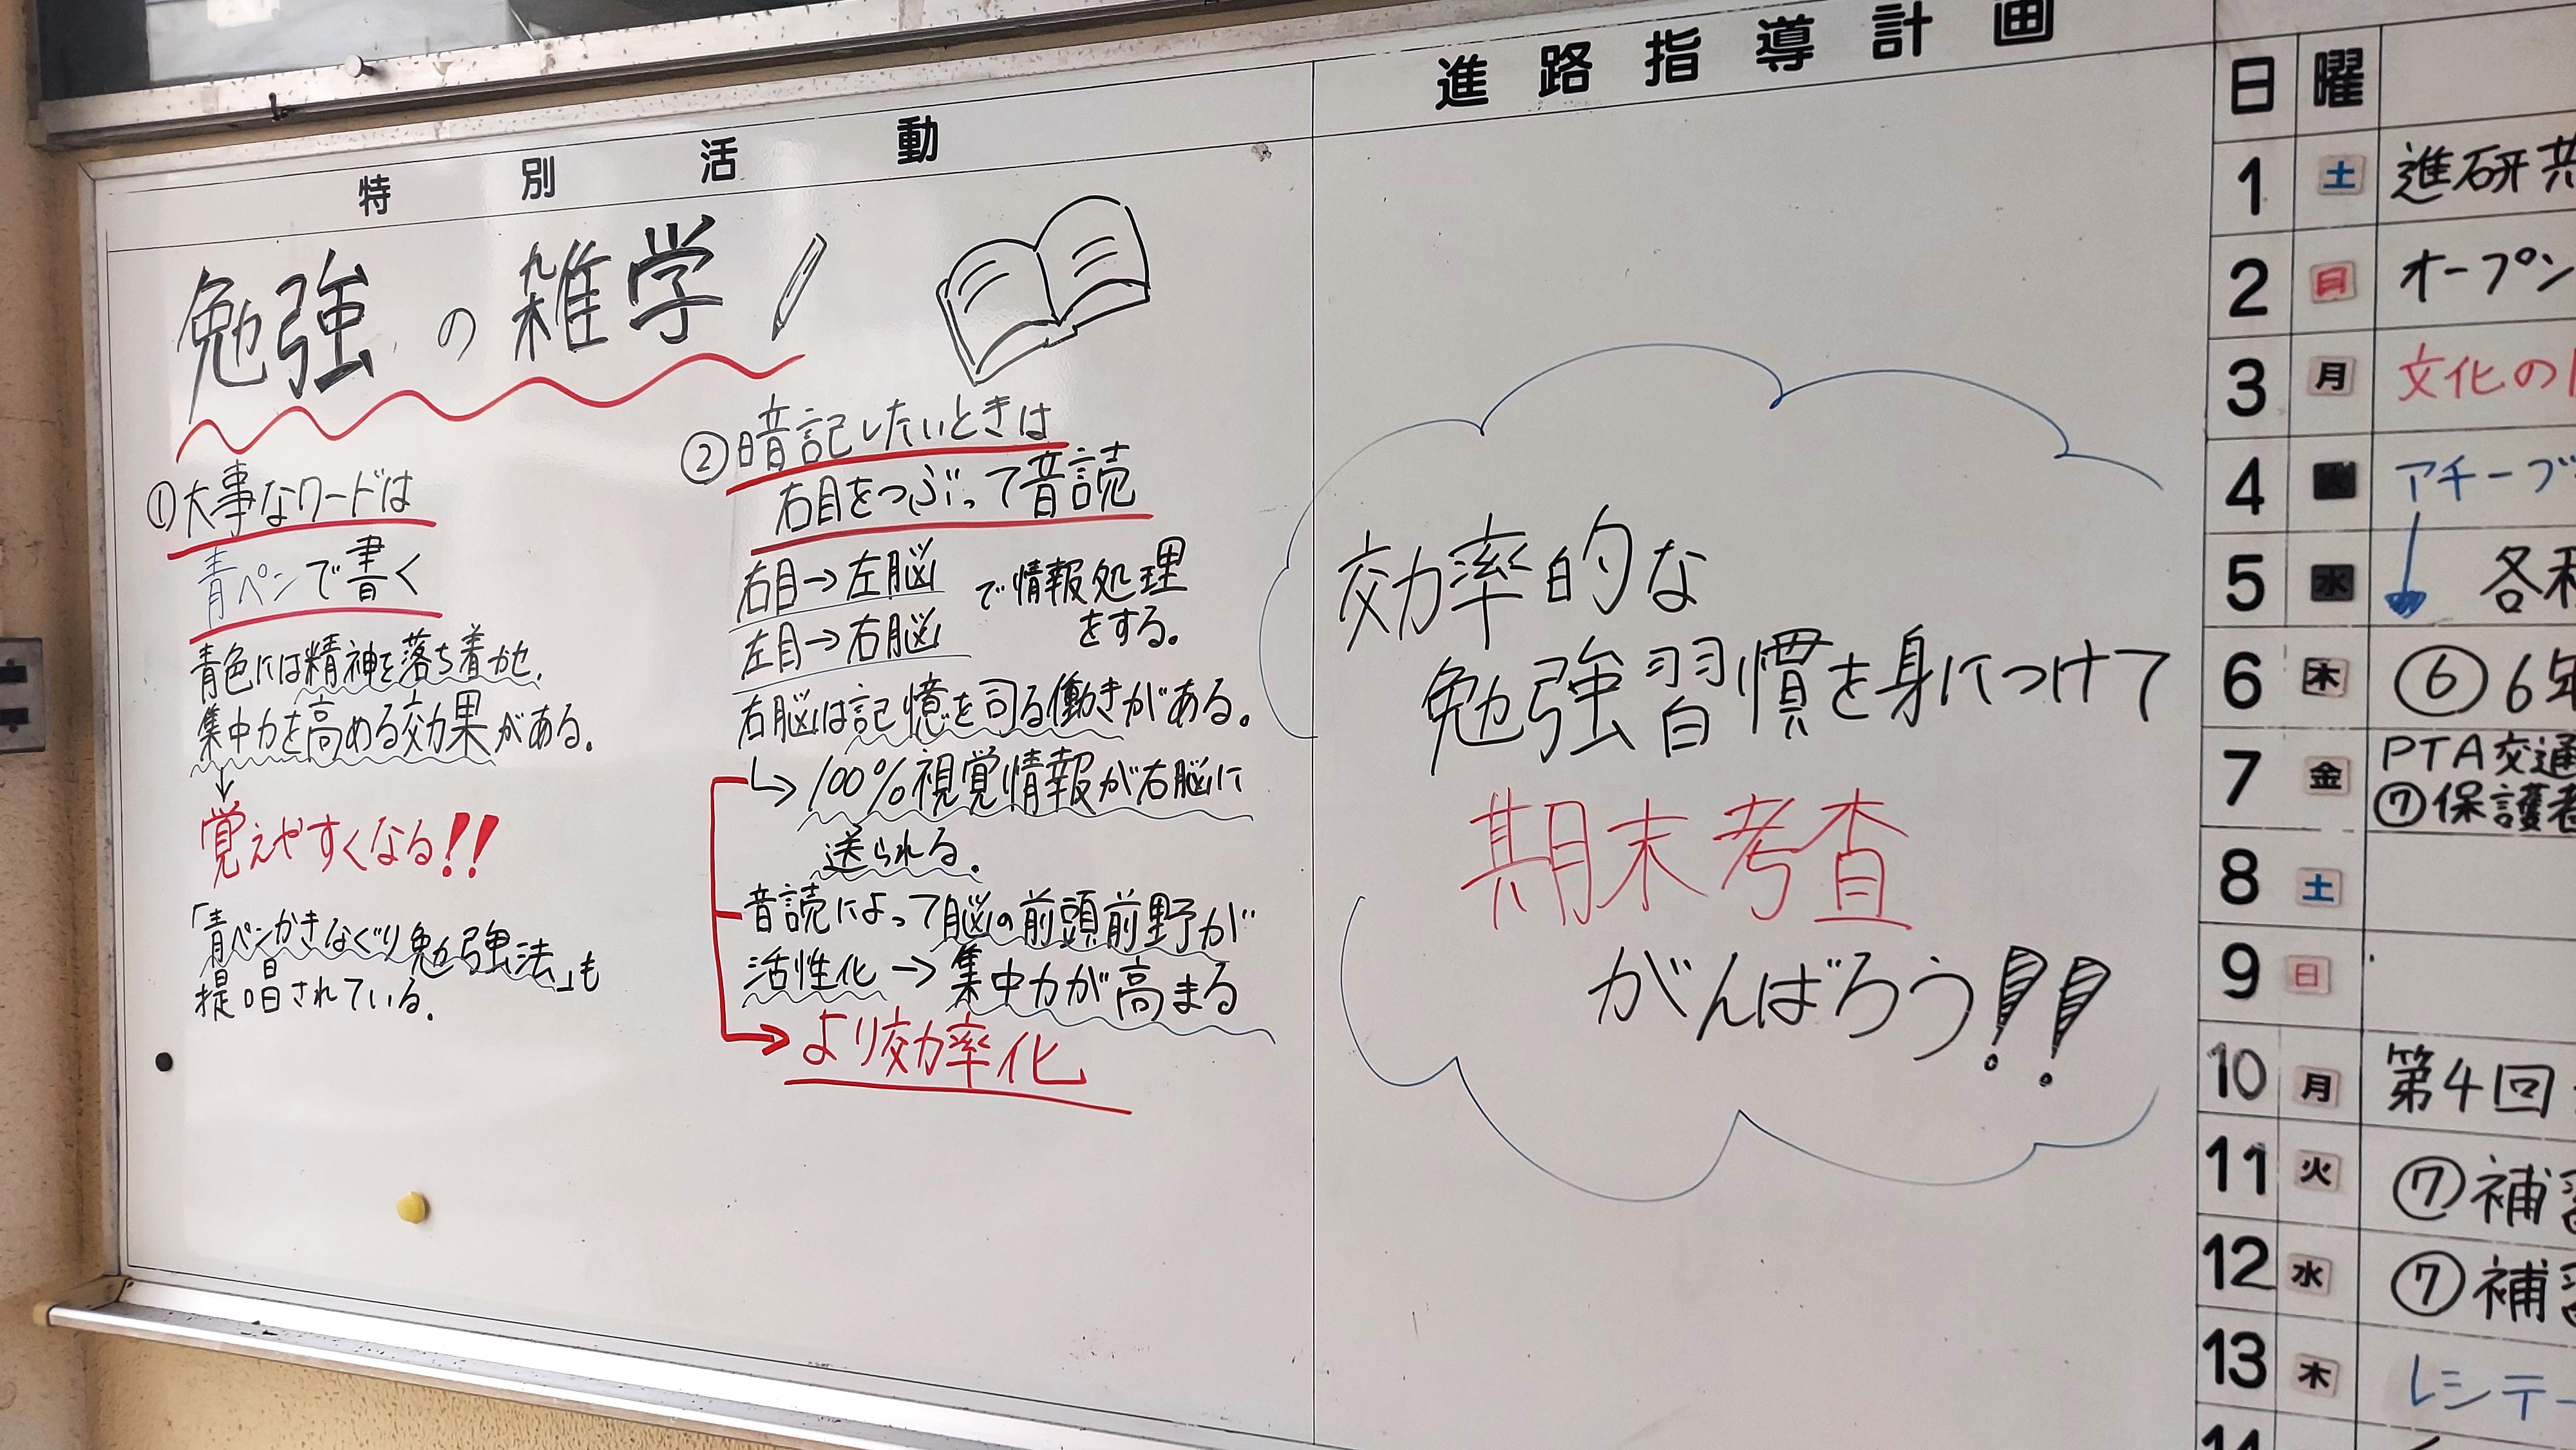 特別活動
勉強の雑学
①大事なワードは
青ペンで書く
青色には精神を落ち着かせ、
集中力を高める効果がある。
↓
覚えやすくなる!!
「青ペンかきなぐり勉強法」も
提唱されている。
②暗記したいときは
右目をつぶって音読
右目→左脳
左目→右脳
で情報処理
をする。
右脳は記憶を司る働きがある。
↳100%視覚情報が右脳に
送られる。
音読によって脳の前頭前野が
活性化→集中力が高まる
→より効率化
進路指導計画
効率的な
勉強習慣を身につけて
期末考査
がんばろう!!
日 曜
1 土 進研
2 日 オープン
3 月 文化の
4 火 アチーブ
5 水 各
6 木 ⑥6年
7 金 PTA交通
⑦保護者
8 土
9 日
10 月 第4回
11 火 ⑦補
12 水 ⑦補
13 木 レシテー
14